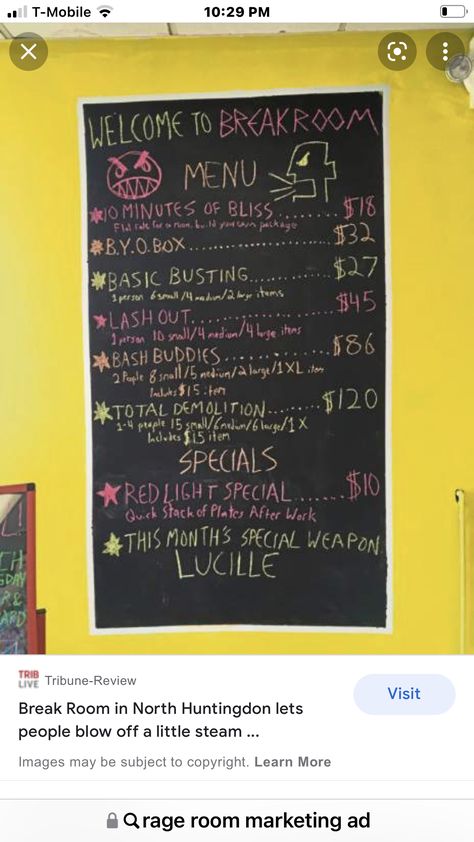 T-Mobile 10:29 PM
WELCOME TO BREAKROOM
MENU
10 MINUTES OF BLISS........ $18
Flat rate for a room, build your own package
B.Y.O. BOX.................. $32
BASIC BUSTING............ $27
1 person 6 small/4 medium/2 large items
LASH OUT................. $45
1 person 10 small/4 medium/4 large items
BASH BUDDIES............. $86
2 People 8 small/5 medium/2 large/1XL item
Includes $15 item
TOTAL DEMOLITION........ $120
1-4 people 15 small/6 medium/6 large/1X
Includes $15 item
SPECIALS
RED LIGHT SPECIAL....... $10
Quick Stack of Plates After Work
THIS MONTH'S SPECIAL WEAPON
LUCILLE
TRIB
LIVE
Tribune-Review
Visit
Break Room in North Huntingdon lets
people blow off a little steam ...
Images may be subject to copyright. Learn More
rage room marketing ad